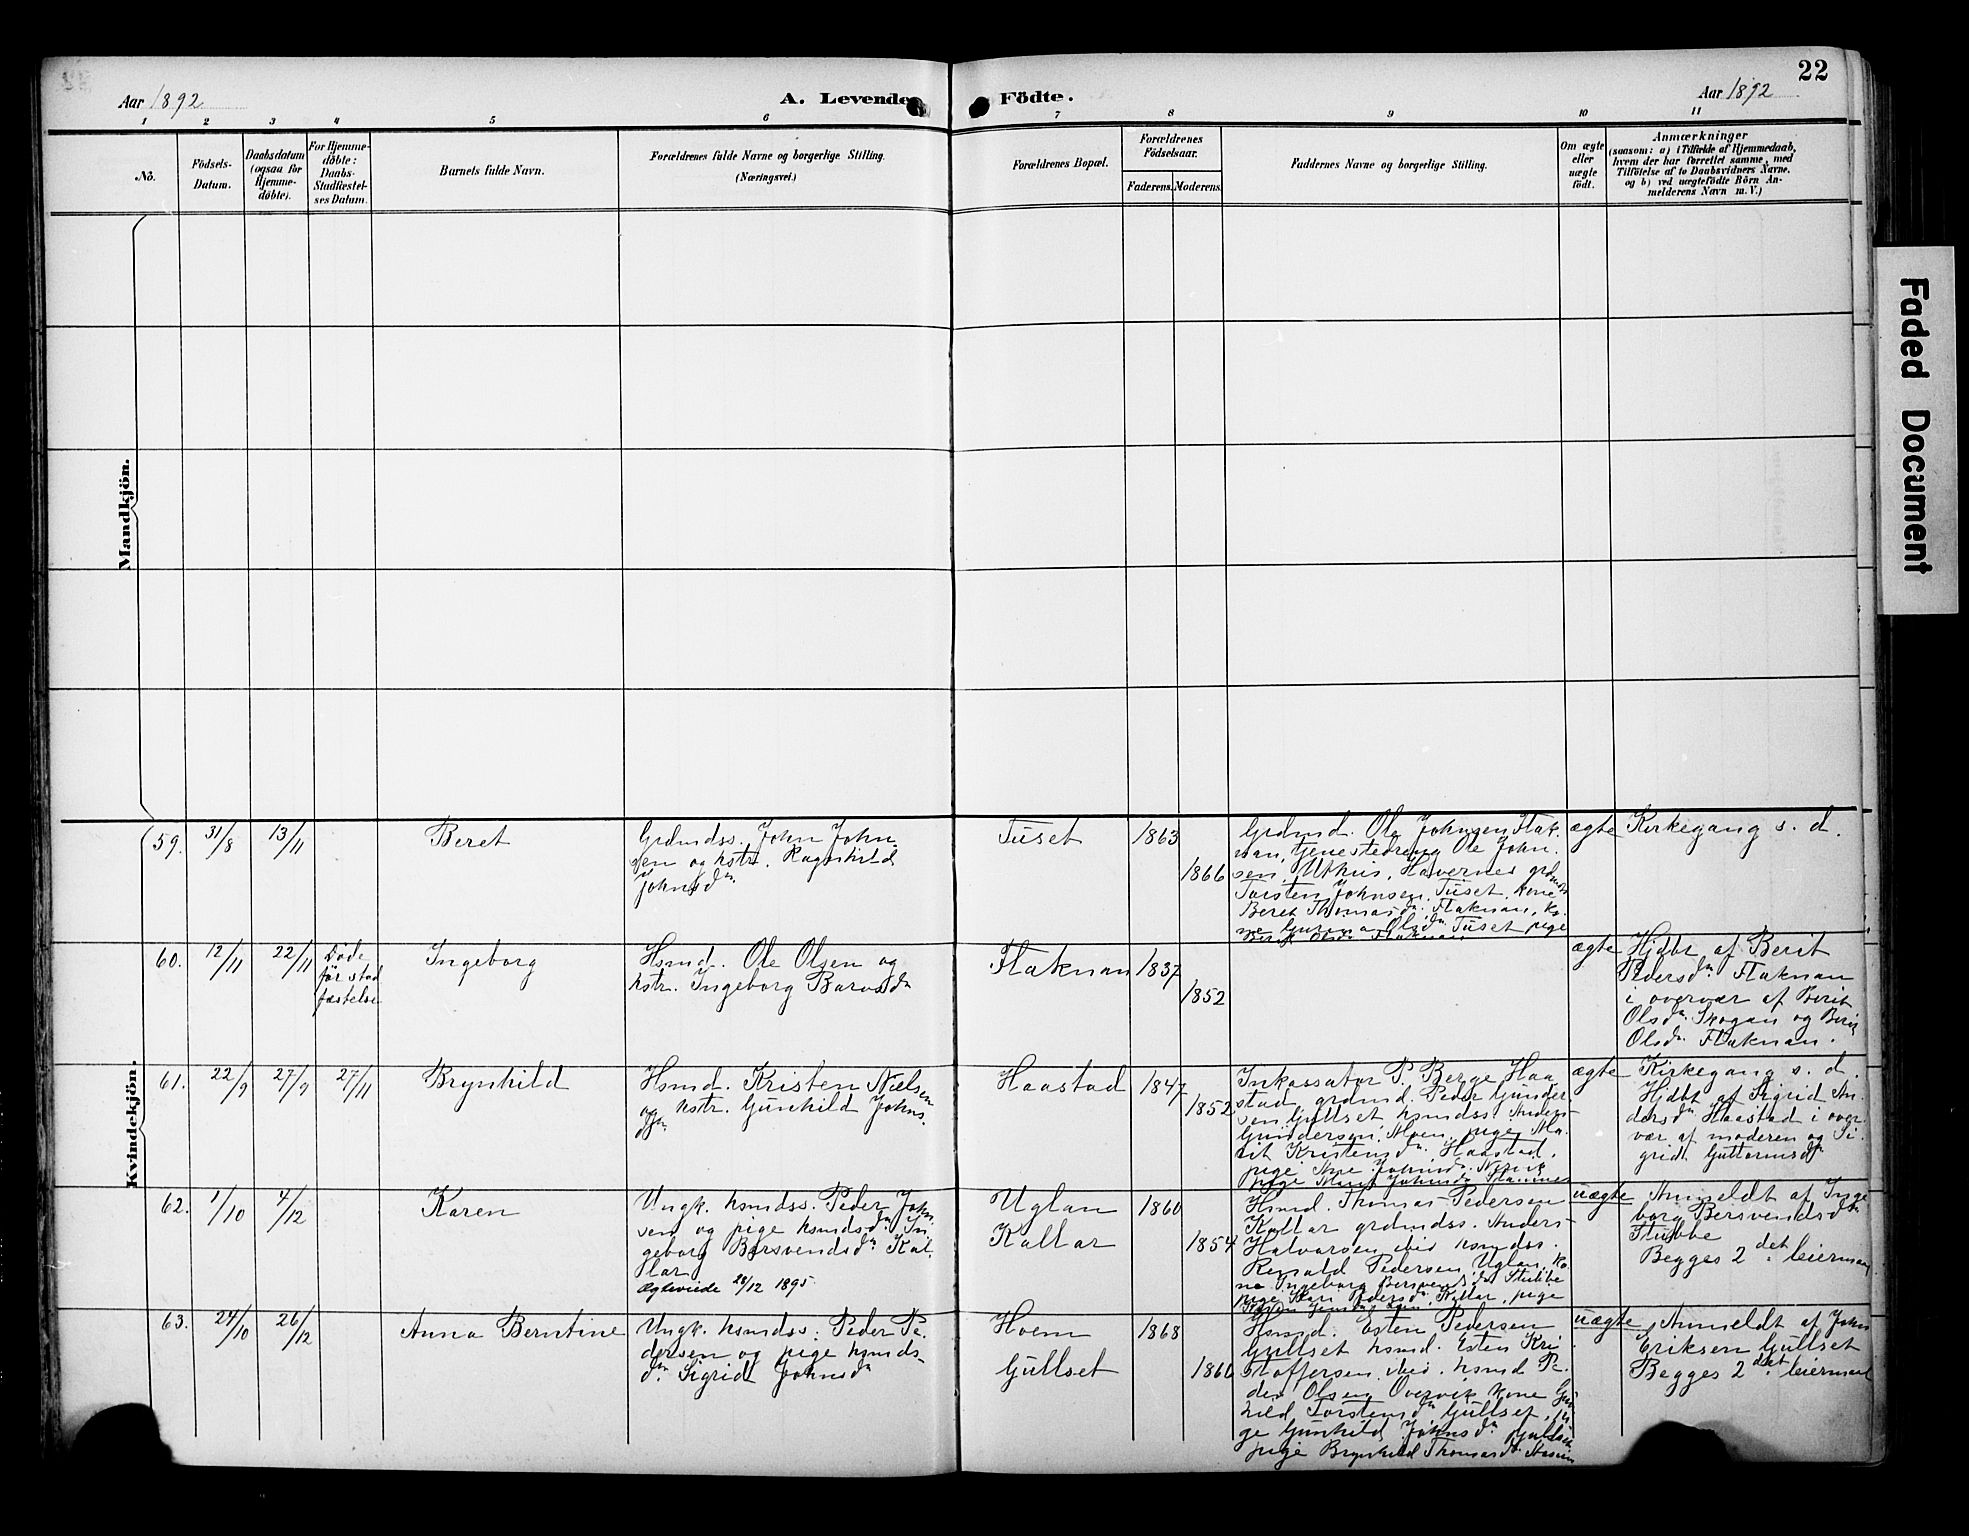 22
Aar 1892
A. Levende Födte.
Aar 1892
1 2 3 4 5 6 7 8 9 10 11
No.
Födsels-
Datum.
Daabsdatum
(ogsaa for
Hjemme-
døbte).
For Hjemme-
døbte:
Daabs-
Stadfæstel-
ses Datum.
Barnets fulde Navn.
Forældrenes fulde Navne og borgerlige Stilling.
(Næringsvei.)
Forældrenes Bopæl.
Forældrenes
Födselsaar.
Faderens.
Moderens.
Faddernes Navne og borgerlige Stilling.
Om ægte
eller
uægte
födt.
Anmærkninger
(saasom: a) i Tilfælde af Hjemmedaab,
hvem der har forrettet samme, med
Tilföielse af to Daabsvidners Navne,
og b) ved uægtefödte Börn An-
melderens Navn m. V.)
Mandkjön.
Kvindekjön.
59.
31/8
13/11
Beret
Grdmdss. John John
sen og kstr. Ragnhild
Johnsdn
Tuset
1863
1866
Grdmd. Ole Johnsen Flak-
nan, tjenestedreng Ole John-
sen, Uthus, Havernes grdmds
Torsten Johnsen, Tuset, kone
Beret Thomasdn Flaknan, ko-
ne Olsdn Tuset pige
Berit Olsdn Flaknan
ægte
Kirkegang s. d.
60.
12/11
22/11
Døde
før stad
fæstelse
Ingeborg
Hsmd. Ole Olsen og
kstr. Ingeborg Barosdn
Flaknan
1837
1852
ægte
Hjdbt af Berit
Pedersdn Flaknan
i overvær af Berit
Olsdn Skogan og Berit
Olsdn Flaknan.
61.
22/9
27/9
27/11
Brynhild
Hsmd. Kristen Nielsen
og kstr. Gunhild Johns
dn
Haastad
1847
1852
Inkassator P. Berge Haa
stad, grdmd. Peder Gunder-
sen Gullset hsmdss. Anders
Gunddersen, Moen, pige Ma-
rit Kristensdn Haastad,
pige Ane Johnsdn
pige Marit Johnsdn
ægte
Kirkegang s. d.
Hjdbt af Sigrid An-
dersdn Haastad i over-
vær af moderen og Si-
grid Guttormsdn
62.
1/10
4/12
Karen
Ungk. hsmdss. Peder John-
sen og pige hsmdsdn In-
geborg Bersvendsdn Kal-
tlar
Ægteviede 28/12 1895
Uglan
Kallar
1860
1854
Hsmd. Thomas Pedersen
Kallar grdmdss. Anders
Halvorsen ibid hsmdss.
Renald Pedersen, Uglan, Ko-
ne Ingeborg Bersvendsdn Stubbe
pige Kari Pedersdn Kallar, pige
uægte
Anmeldt af Inge
borg Bersvendsdn
Stubbe
Begges 2det leiermaal
63.
24/10
26/12
Anna Berntine
Ungk. hsmdss. Peder Pe-
dersen og pige hsmds-
dn Sigrid Johnsdn
Hoem
Gullset
1868
1866
Hsmd. Esten Pedersen
Gullset hsmd. Esten Kri
stoffersen ibid. hsmd Pe-
der Olsen Overvik kone Gun
hild Torstensdn Gullset, pi-
ge Gunhild Johnsdn Gullset
pige Brynhild Thomasdn
uægte
Anmeldt af John
Eriksen Gullset
Begges 2det leiermaal
Faded Document